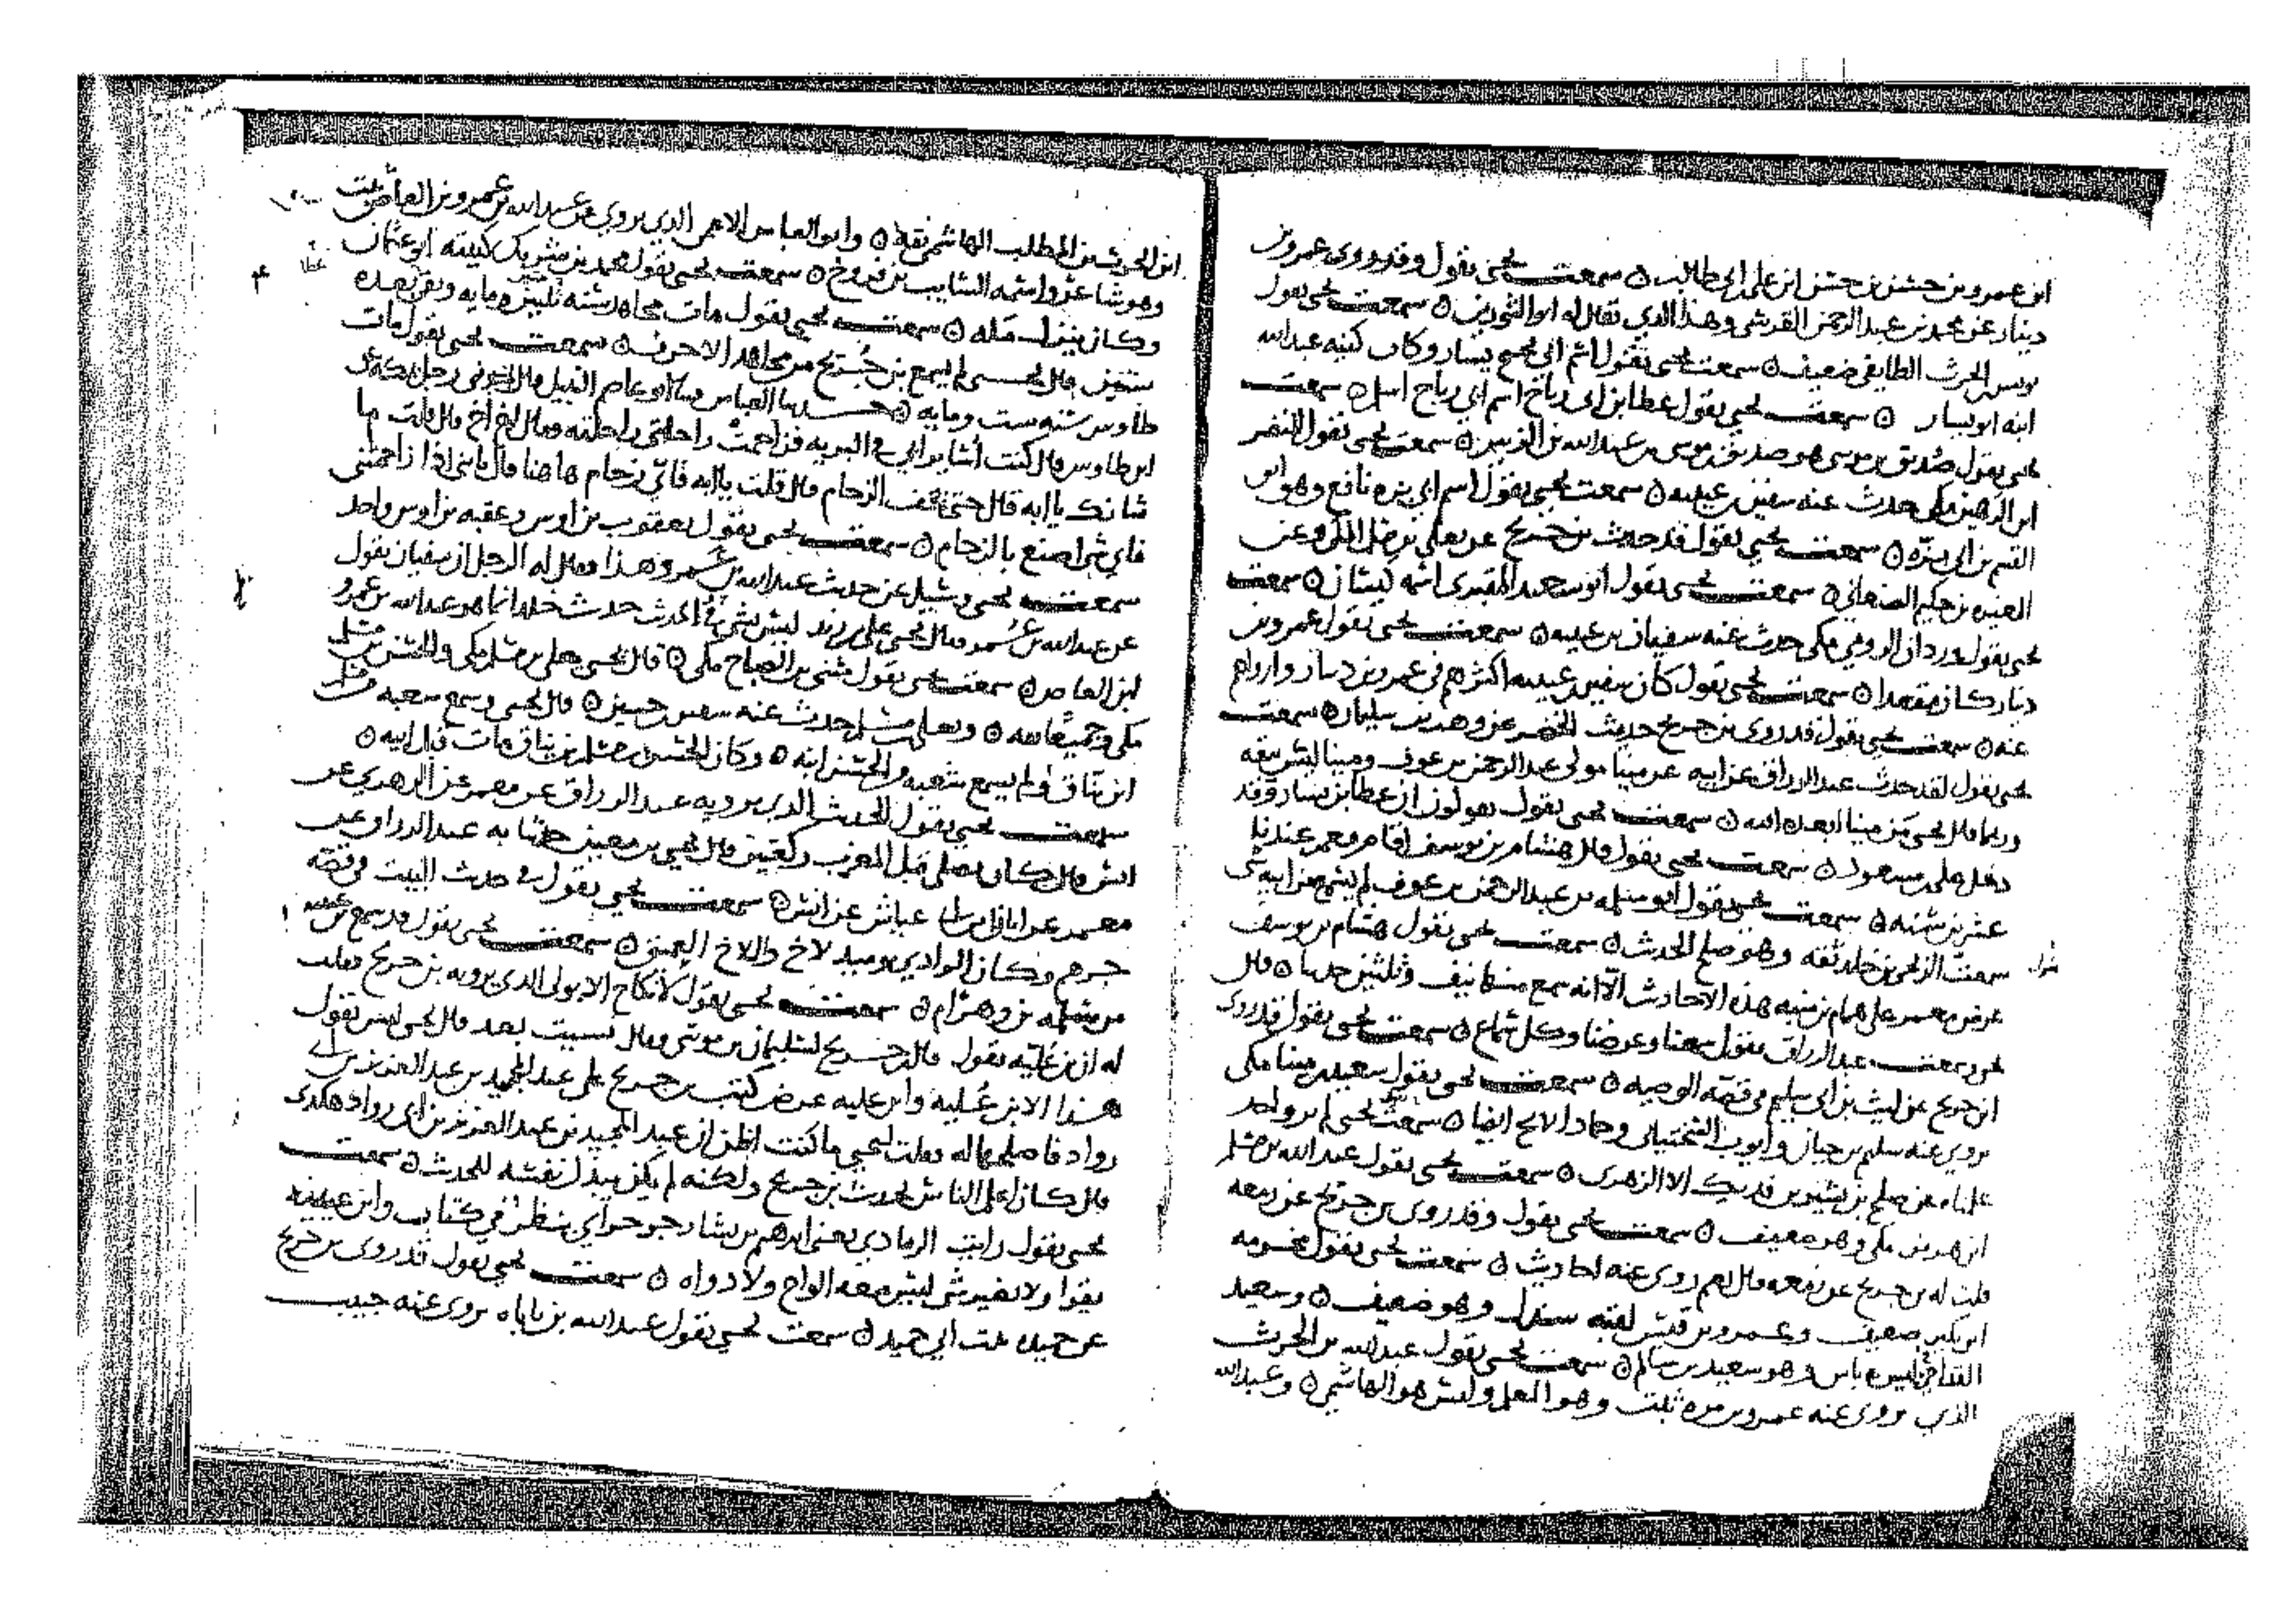 ابن عمرو بن حسن بن حسن ابن علي بن ابي طالب ۞ سمعت يحيى يقول وقد روى عمرو بن
دينار عن محمد بن عبد الرحمن القرشي وهذا الذي يقال له ابو الثورين ۞ سمعت يحيى يقول
يونس بن الحرث الطايفي ضعيف ۞ سمعت يحيى يقول اسم ابي نجيح يسار وكان كنيه عبد الله
ابنه ابو يسار ۞ سمعت يحيى يقول عطا بن ابي رباح اسم ابي رباح اسلم ۞ سمعت
يحيى يقول صديق بن موسى هو صديق بن موسى بن عبد الله بن الزبير ۞ سمعت يحيى يقول النضر
ابن مكي حدث عنه سفين بن عيينه ۞ سمعت يحيى يقول اسم ابي بزه نافع وهو ابو
القسم بن ابي بزه ۞ سمعت يحيى يقول قد حدث بن جريج عن يعلى بن مسلم المكي وعن
المغيره بن حكيم الصنعاني ۞ سمعت يحيى يقول ابو سعيد المقبري اسمه كيسان ۞ سمعت
يحيى يقول وردان الرومي مكي حدث عنه سفيان بن عيينه ۞ سمعت يحيى يقول عمرو بن
دينار كان مقعدا ۞ سمعت يحيى يقول كان سفين بن عيينه اكثرهم في عمرو بن دينار وارواهم
عنه ۞ سمعت يحيى يقول قد روى بن جريج حديث الخضر عن وهب بن سليمان ۞ سمعت
يحيى يقول لقد حدث عبد الرزاق عن ابيه عن مينا مولى عبد الرحمن بن عوف ومينا ليس بثقه
وربما قال يحيى من مينا ابعده الله ۞ سمعت يحيى يقول يقولون ان عطا بن يسار قد
دخل على بن مسعود ۞ سمعت يحيى يقول قال هشام بن يوسف اقام معمر عندنا
عشرين سنه ۞ سمعت يحيى يقول ابو سلمه بن عبد الرحمن بن عوف لم يسمع من ابيه شي
سمعت الزنجي بن خلد ثقه وهو صلح الحديث ۞ سمعت يحيى يقول هشام بن يوسف
عرض معمر على همام بن منبه هذه الاحاديث الا انه سمع منها نيف وثلثين حديثا ۞ قال
يحيى سمعت عبد الرزاق يقول سمعنا وعرضنا وكل سماع ۞ سمعت يحيى يقول قد روى
ابن جريج عن ليث بن ابي سليم في قصه الوصيه ۞ سمعت يحيى يقول سعيد بن مينا مكي
يروي عنه سليم بن حيان وايوب السختياني وحماد الابح ايضا ۞ سمعت يحيى لم يرو احد
علمناه عن صلح بن بشير بن فديك الا الزهري ۞ سمعت يحيى يقول عبد الله بن مسلم
ابن هرمز مكي وهو ضعيف ۞ سمعت يحيى يقول وقد روى بن جريج عن
قلت له بن جريج عن قال نعم روى عنه احاديث ۞ سمعت يحيى يقول مخرمه
ابن بكير ضعيف وعمرو بن قيس لقبه سندل وهو ضعيف ۞ وسعيد
القداح ليس به باس وهو سعيد بن سالم ۞ سمعت يحيى يقول عبد الله بن الحرث
الذي يروي عنه عمرو بن مره ثبت وهو المعلم وليس هو الهاشمي ۞ وعبد الله
ابن الحرث بن المطلب الهاشمي ثقه ۞ وابو العباس الاعمى الذي يروي عن عبد الله بن عمرو بن العاص ثبت
وهو شاعر واسمه السايب بن فروخ ۞ سمعت يحيى يقول محمد بن شريك كنيته ابو عثمان
وكان ينزل مكه ۞ سمعت يحيى يقول مات مجاهد سنه ثلث ومايه وبقي بعده
سنتين قال يحيى لم يسمع بن جريج من مجاهد الا حرف ۞ سمعت يحيى يقول مات
طاوس سنه ست ومايه ۞ حدثنا العباس ثنا ابو عاصم النبيل قال اخبرني رجل بمكه عن
ابن طاوس قال كنت اساير ابي في البريه فزاحمت راحلتي راحلته فقال اخ اخ قال قلت ما
شانك يا ابه قال حتى تخف الزحام قال قلت يا ابه فاي زحام هاهنا قال يا بني اذا زاحمتني
فاي شي اصنع بالزحام ۞ سمعت يحيى يقول يعقوب بن اوس وعقبه بن اوس واحد
سمعت يحيى وسيل عن حديث عبد الله بن عمر وهذا فقال له الرجل ان سفيان يقول
عن عبد الله بن عمر فقال يحيى علي بن زيد ليس بشي في الحديث حديث خلد انما هو عبد الله بن عمرو
ابن العاص ۞ سمعت يحيى يقول مثنى بن الصباح مكي ۞ قال يحيى يعلى بن مسلم مكي والحسن بن مسلم
مكي وجميعا ثقه ۞ ويعلى بن مسلم حدث عنه سفين بن حسين ۞ قال يحيى وسمع شعبه من مسلم
ابن يناق ولم يسمع شعبه من الحسن ابنه ۞ وكان الحسن بن مسلم بن يناق مات قبل ابيه ۞
سمعت يحيى يقول الحديث الذي يرويه عبد الرزاق عن معمر عن الزهري عن
انس قال كان يصلي قبل المغرب ركعتين قال يحيى بن معين حدثنا به عبد الرزاق عن
معمر عن ابان بن ابي عياش عن انس ۞ سمعت يحيى يقول في حديث البيت في قصه
جرهم وكان الوادي يوميذ لاخ واللاخ العميق ۞ سمعت يحيى يقول قد سمع بن عيينه
من سلمه بن وهرام ۞ سمعت يحيى يقول لا نكاح الا بولي الذي يرويه بن جريج فقلت
له ان بن عليه يقول قال بن جريج لسليمان بن موسى فقال نسيت بعد قال يحيى ليس يقول
هذا الا بن عليه وابن عليه عرض كتب بن جريج على عبد المجيد بن عبد العزيز بن ابي
رواد فاصلحها له فقلت ليحيى ما كنت اظن ان عبد المجيد بن عبد العزيز بن ابي رواد هكذى
قال كان اعلم الناس بحديث بن جريج ولكنه لم يكن يبذل نفسه للحديث ۞ سمعت
يحيى يقول رايت الرمادي يعني ابرهيم بن بشار جو حراي ينظر في كتاب وابن عيينه
يقرا ولا يغير شي ليس معه الواح ولا دواه ۞ سمعت يحيى يقول قد روى بن جريج
عن حميده بنت ابي حميد ۞ سمعت يحيى يقول عبد الله بن باباه يروي عنه حبيب